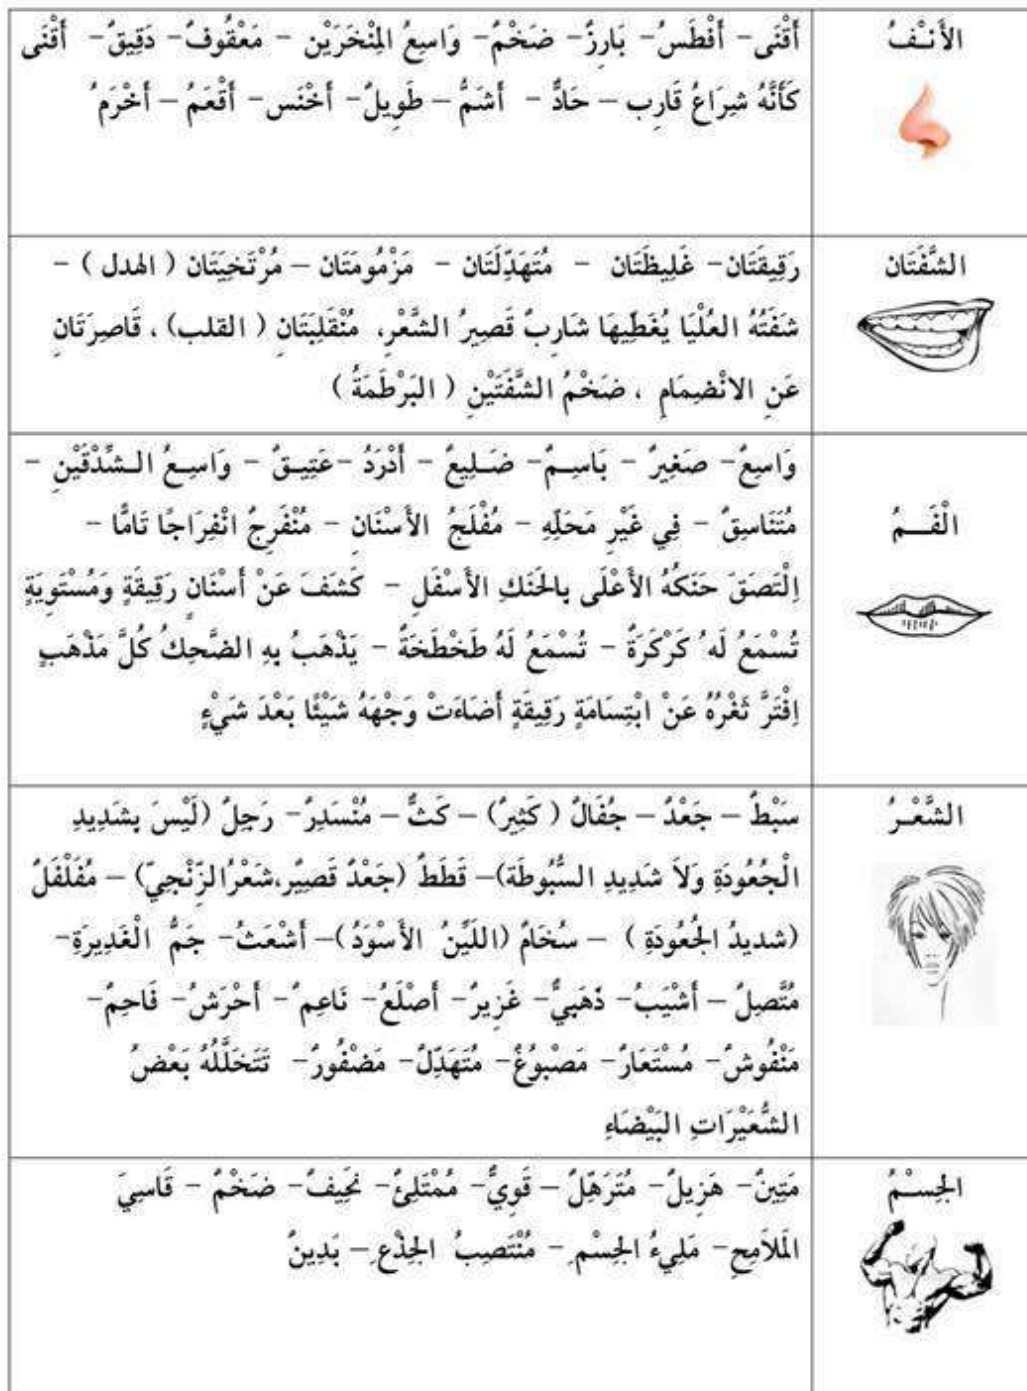 الأَنْفُ
أَقْنَى- أَفْطَسُ- بَارِزٌ- ضَخْمٌ- وَاسِعُ المِنْخَرَيْن - مَعْقُوفٌ- دَقِيقٌ- أَقْنَى
كَأَنَّهُ شِرَاعُ قَارِب – حَادٌّ - أَشَمُّ – طَوِيلٌ- أَخْنَس- أَقْعَمُ – أَخْرَمُ
الشَّفَتَان
رَقِيقَتَان- غَلِيظَتَان - مُتَهَدِّلَتَان - مَزْمُومَتَان – مُرْتَخِيَتَان ( الهدل ) -
شَفَتُهُ العُلْيَا يُغَطِّيهَا شَارِبٌ قَصِيرُ الشَّعْرِ، مُنْقَلِبَتَانِ ( القلب) ، قَاصِرَتَانِ
عَنِ الانْضِمَامِ ، ضَخْمُ الشَّفَتَيْنِ ( البَرْطَمَةُ )
الْفَـــمُ
وَاسِعٌ- صَغِيرٌ - بَاسِـمٌ- ضَـلِيعٌ - أَدْرَدُ -عَتِيـقٌ - وَاسِـعُ الـشِّدْقَيْنِ -
مُتَنَاسِقٌ - فِي غَيْرِ مَحَلِّهِ - مُفْلَجُ الأَسْنَانِ - مُنْفَرِجٌ انْفِرَاجًا تَامًّا -
اِلْتَصَقَ حَنَكُهُ الأَعْلَى بِالحَنَكِ الأَسْفَلِ - كَشَفَ عَنْ أَسْنَانٍ رَقِيقَةٍ وَمُسْتَوِيَةٍ
تُسْمَعُ لَهُ كَرْكَرَةٌ - تُسْمَعُ لَهُ طَخْطَخَةٌ - يَذْهَبُ بِهِ الضَّحِكُ كُلَّ مَذْهَبٍ
اِفْتَرَّ ثَغْرُهُ عَنْ ابْتِسَامَةٍ رَقِيقَةٍ أَضَاءَتْ وَجْهَهُ شَيْئًا بَعْدَ شَيْءٍ
الشَّعْـرُ
سَبْطٌ – جَعْدٌ – جُفَالٌ ( كَثِيرٌ) – كَثٌّ – مُنْسَدِرٌ- رَجِلٌ (لَيْسَ بِشَدِيدِ
الْجُعُودَةِ وَلاَ شَدِيدِ السُّبُوطَة)– قَطَطٌ (جَعْدٌ قَصِيٌر،شَعْرُالزِّنْجِيّ) – مُفَلْفَلٌ
(شديدُ الجُعُودَةِ ) – سُخَامٌ (اللَّيِّنُ الأَسْوَدُ)– أَشْعَثُ- جَمُّ الْغَدِيرَةِ-
مُتَّصِلٌ – أَشْيَبُ- ذَهَبِيٌّ- غَزِيرٌ- أَصْلَعُ- نَاعِمٌ - أَحْرَشُ- فَاحِمٌ-
مَنْفُوشٌ- مُسْتَعَارٌ- مَصْبُوغٌ- مُتَهَدِّلٌ- مَضْفُورٌ- تَتَخَلَّلُهُ بَعْضُ
الشُّعَيْرَاتِ البَيْضَاءِ
الجِسْـمُ
مَتِينٌ- هَزِيلٌ- مُتَرَهِّلٌ – قَوِيٌّ- مُمْتَلِئٌ- نَحِيفٌ- ضَخْمٌ - قَاسِيَ
المَلاَمِحِ- مَلِيءُ الجِسْمِ - مُنْتَصِبُ الجِذْعِ – بَدِينٌ